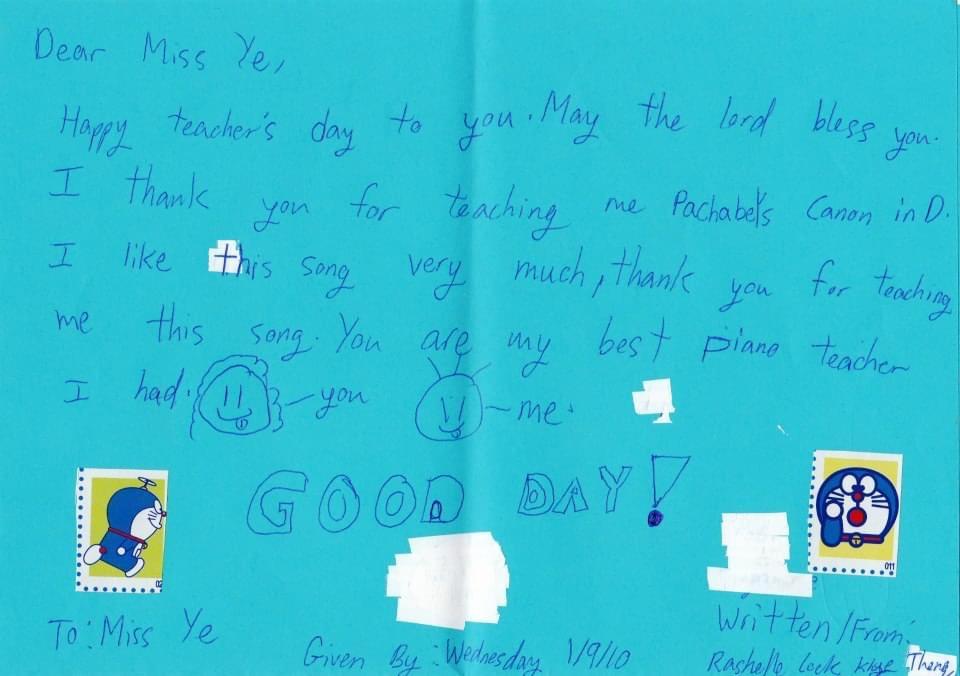 Dear Miss Ye,
Happy teacher's day to you. May the lord bless you.
I thank you for teaching me Pachabel's Canon in D.
I like this song very much, thank you for teaching
me this song. You are my best piano teacher
I had. you me.
GOOD DAY!
02
011
To: Miss Ye
Given By: Wednesday 1/9/10
Written/From:
Rashelle Theng